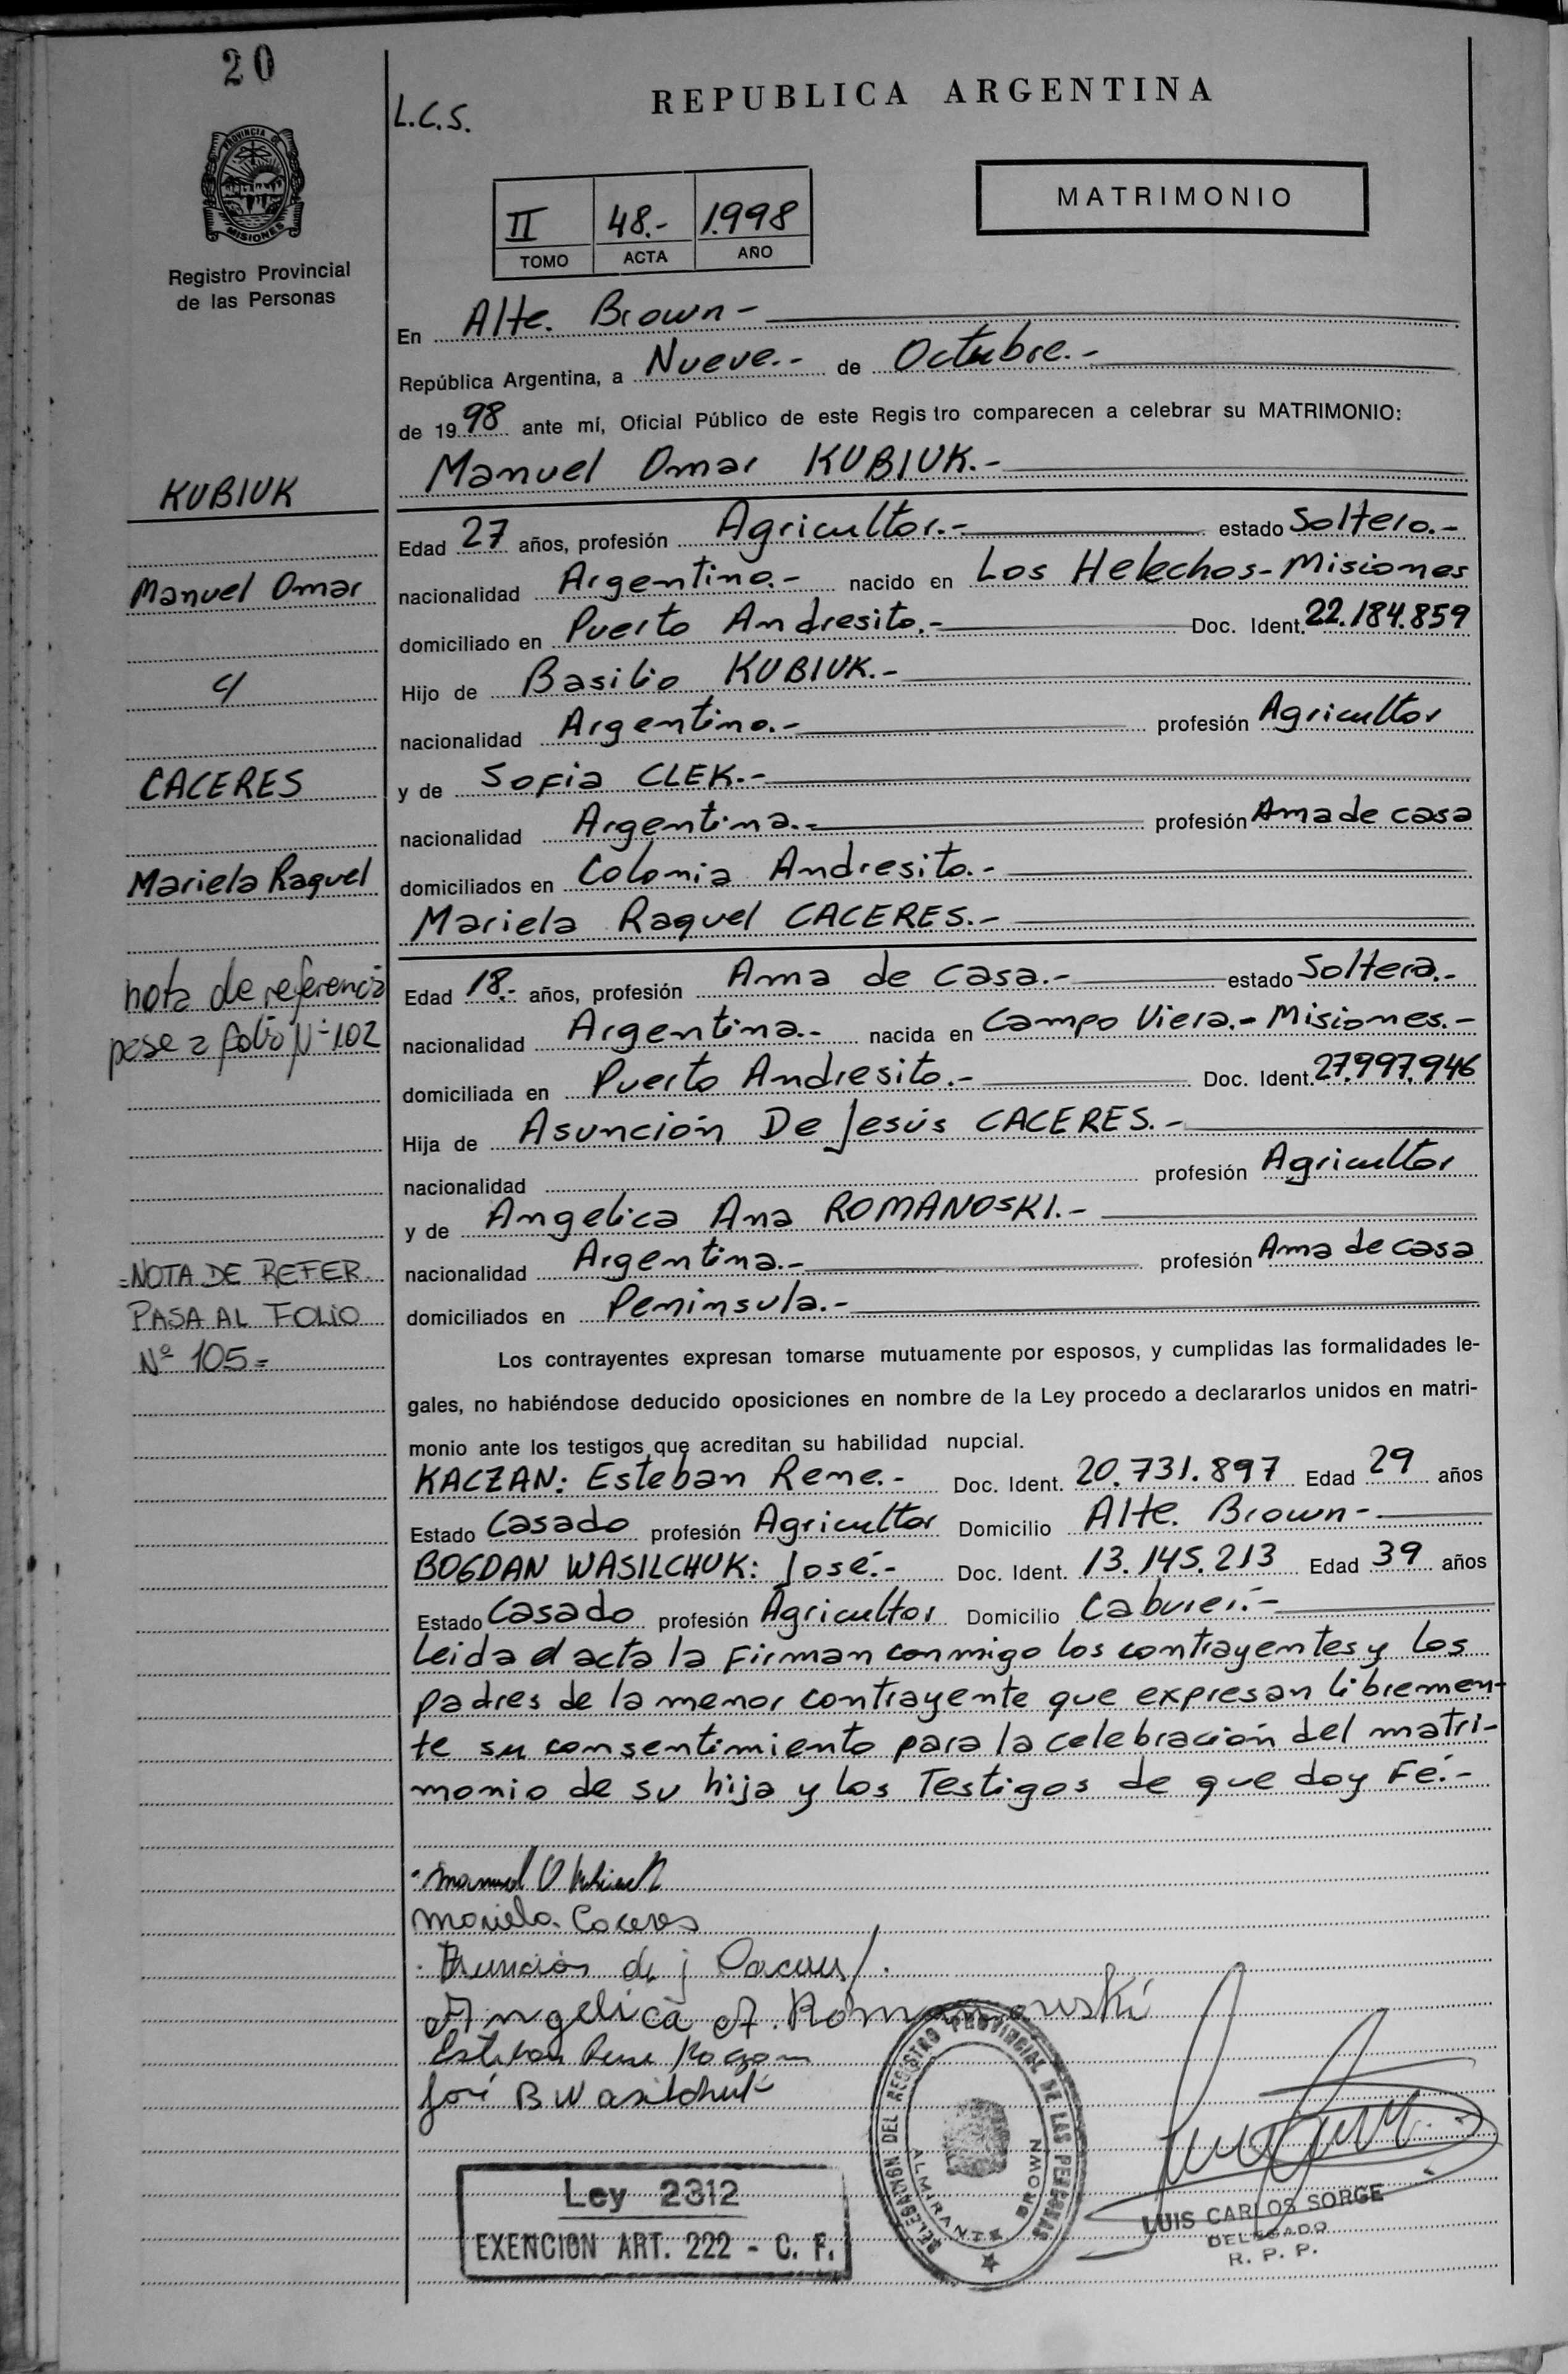 20
L.C.S.
REPUBLICA ARGENTINA
PROVINCIA DE
MISIONES
Registro Provincial
de las Personas
II 48.- 1.998
TOMO ACTA AÑO
MATRIMONIO
En Alte. Brown -
República Argentina, a Nueve.- de Octubre.-
de 1998 ante mí, Oficial Público de este Regis tro comparecen a celebrar su MATRIMONIO:
Manuel Omar KUBIUK.-
Edad 27 años, profesión Agricultor.- estado Soltero.-
nacionalidad Argentino.- nacido en Los Helechos - Misiones
domiciliado en Puerto Andresito.- Doc. Ident. 22.184.859
Hijo de Basilio KUBIUK.-
nacionalidad Argentino.- profesión Agricultor
y de Sofia CLEK.-
nacionalidad Argentina.- profesión Ama de casa
domiciliados en Colonia Andresito.-
Mariela Raquel CACERES.-
Edad 18.- años, profesión Ama de casa.- estado Soltera.-
nacionalidad Argentina.- nacida en Campo Viera.- Misiones.-
domiciliada en Puerto Andresito.- Doc. Ident. 27.997.946
Hija de Asunción De Jesús CACERES.-
nacionalidad profesión Agricultor
y de Angelica Ana ROMANOSKI.-
nacionalidad Argentina.- profesión Ama de casa
domiciliados en Peninsula.-
Los contrayentes expresan tomarse mutuamente por esposos, y cumplidas las formalidades le-
gales, no habiéndose deducido oposiciones en nombre de la Ley procedo a declararlos unidos en matri-
monio ante los testigos que acreditan su habilidad nupcial.
KACZAN: Esteban Rene.- Doc. Ident. 20.731.897 Edad 29 años
Estado Casado profesión Agricultor Domicilio Alte. Brown -
BOGDAN WASILCHUK: José.- Doc. Ident. 13.145.213 Edad 39 años
Estado Casado profesión Agricultor Domicilio Caburei.-
Leida el acta la Firman conmigo los contrayentes y los
padres de la menor contrayente que expresan libremen-
te su consentimiento para la celebración del matri-
monio de su hija y los Testigos de que doy Fé.-
KUBIUK
Manuel Omar
c/
CACERES
Mariela Raquel
nota de referencia
pase a folio Nº 102
=NOTA DE REFER.
PASA AL FOLIO
Nº 105=
Manuel O Kubiuk
Mariela Caceres
Asunción de j Caceres
Angelica A. Romanouski
Esteban Rene Kaczan
José B Wasilchuk
DELEGACION DEL REGISTRO PROVINCIAL DE LAS PERSONAS
ALMIRANTE BROWN
Ley 2312
EXENCION ART. 222 - C. F.
LUIS CARLOS SORGE
DELEGADO
R. P. P.